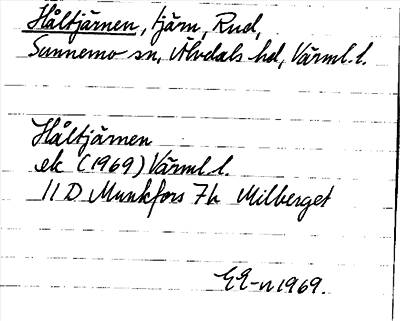 Håltjärnen, tjärn, Rud,
Sunnemo sn, Älvdals hd, Värml. l.
Håltjärnen
ek (1969) Värml. l.
11 D Munkfors 7h Milberget
EE-n 1969.